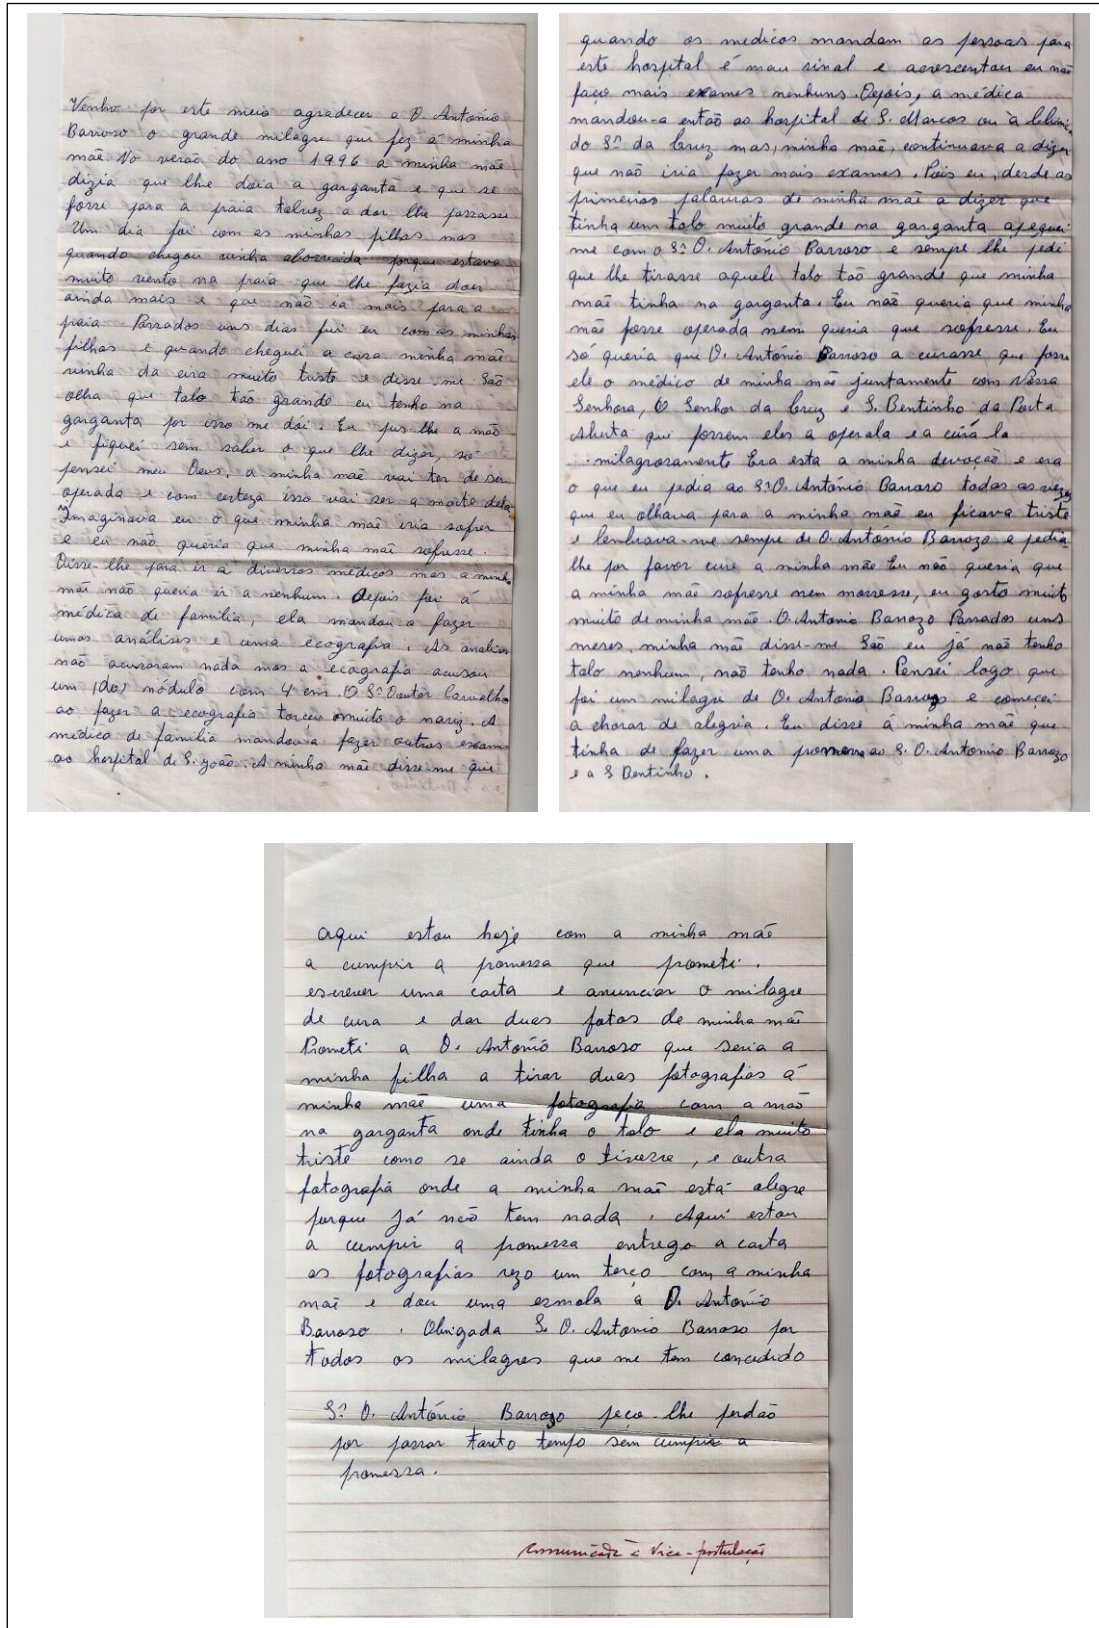 Venho por este meio agradecer a D. António
Barroso o grande milagre que fez á minha
mãe. No verão do ano 1996 a minha mãe
dizia que lhe doia a garganta e que se
fosse para a praia talvez a dor lhe passasse
Um dia foi com as minhas filhas mas
quando chegou vinha aborrecida porque estava
muito vento na praia que lhe fazia doer
ainda mais e que não ia mais para a
praia. Passados uns dias fui eu com as minhas
filhas e quando cheguei a casa minha mãe
vinha da eira muito triste e disse-me São
olha que talo tão grande eu tenho na
garganta por isso me dói. Eu pus-lhe a mão
e fiquei sem saber o que lhe dizer, só
pensei meu Deus, a minha mãe vai ter de ser
operada e com certeza isso vai ser a morte dela
Imaginava eu o que minha mãe iria sofrer
e eu não queria que minha mãe sofresse.
Disse-lhe para ir a diversos médicos mas a minha
mãe não queria ir a nenhum. Depois foi á
médica de familia, ela mandou a fazer
umas análises e uma ecografia. As analises
não acusaram nada mas a ecografia acusou
um (do) nódulo com 4 cm. O Sr. Doutor Carvalho
ao fazer a ecografia torceu muito o nariz. A
médica de familia mandou-a fazer outros exames
ao hospital de S. João. A minha mãe disse-me que
quando os medicos mandam as pessoas para
este hospital é mau sinal e acrescentou eu não
faço mais exames nenhuns. Depois, a médica
mandou-a então ao hospital de S. Marcos ou à Clinica
do Sr. da Cruz mas, minha mãe, continuava a dizer
que não iria fazer mais exames. Pois eu, desde as
primeiras palavras de minha mãe a dizer que
tinha um talo muito grande na garganta apeguei
me com o Sr. D. António Barroso e sempre lhe pedi
que lhe tirasse aquele talo tão grande que minha
mãe tinha na garganta. Eu não queria que minha
mãe fosse operada nem queria que sofresse. Eu
só queria que D. António Barroso a curasse que fosse
ele o médico de minha mãe juntamente com Nossa
Senhora, O Senhor da Cruz e S. Bentinho da Porta
Aberta que fossem eles a operala e a curá la
milagrosamente Era esta a minha devoção e era
o que eu pedia ao Sr. D. António Barroso todas as vezes
que eu olhava para a minha mãe eu ficava triste
e lembrava-me sempre de D. António Barrozo e pedia
lhe por favor cure a minha mãe Eu não queria que
a minha mãe sofresse nem morresse, eu gosto muito
muito de minha mãe. D. António Barrozo Passados uns
meses, minha mãe disse-me São eu já não tenho
talo nenhum, não tenho nada. Pensei logo que
foi um milagre de D. Antonio Barrozo e comecei
a chorar de alegria. Eu disse á minha mãe que
tinha de fazer uma ao S. D. Antonio Barrozo
e a S Bentinho.
aqui estou hoje com a minha mãe
a cumprir a promessa que prometi.
escrever uma carta e anunciar o milagre
de cura e dar duas fotos de minha mãe
Prometi a D. António Barroso que seria a
minha filha a tirar duas fotografias á
minha mãe uma fotografia com a mão
na garganta onde tinha o talo e ela muito
triste como se ainda o tivesse, e outra
fotografia onde a minha mãe está alegre
porque já não tem nada. Aqui estou
a cumprir a promessa entrego a carta
as fotografias rezo um terço com a minha
mãe e dou uma esmola a D. António
Barroso. Obrigada S. D. Antonio Barroso por
todos os milagres que me tem concedido
Sr. D. António Barrozo peço-lhe perdão
por passar tanto tempo sem cumprir a
promessa.
à Vice-postulação